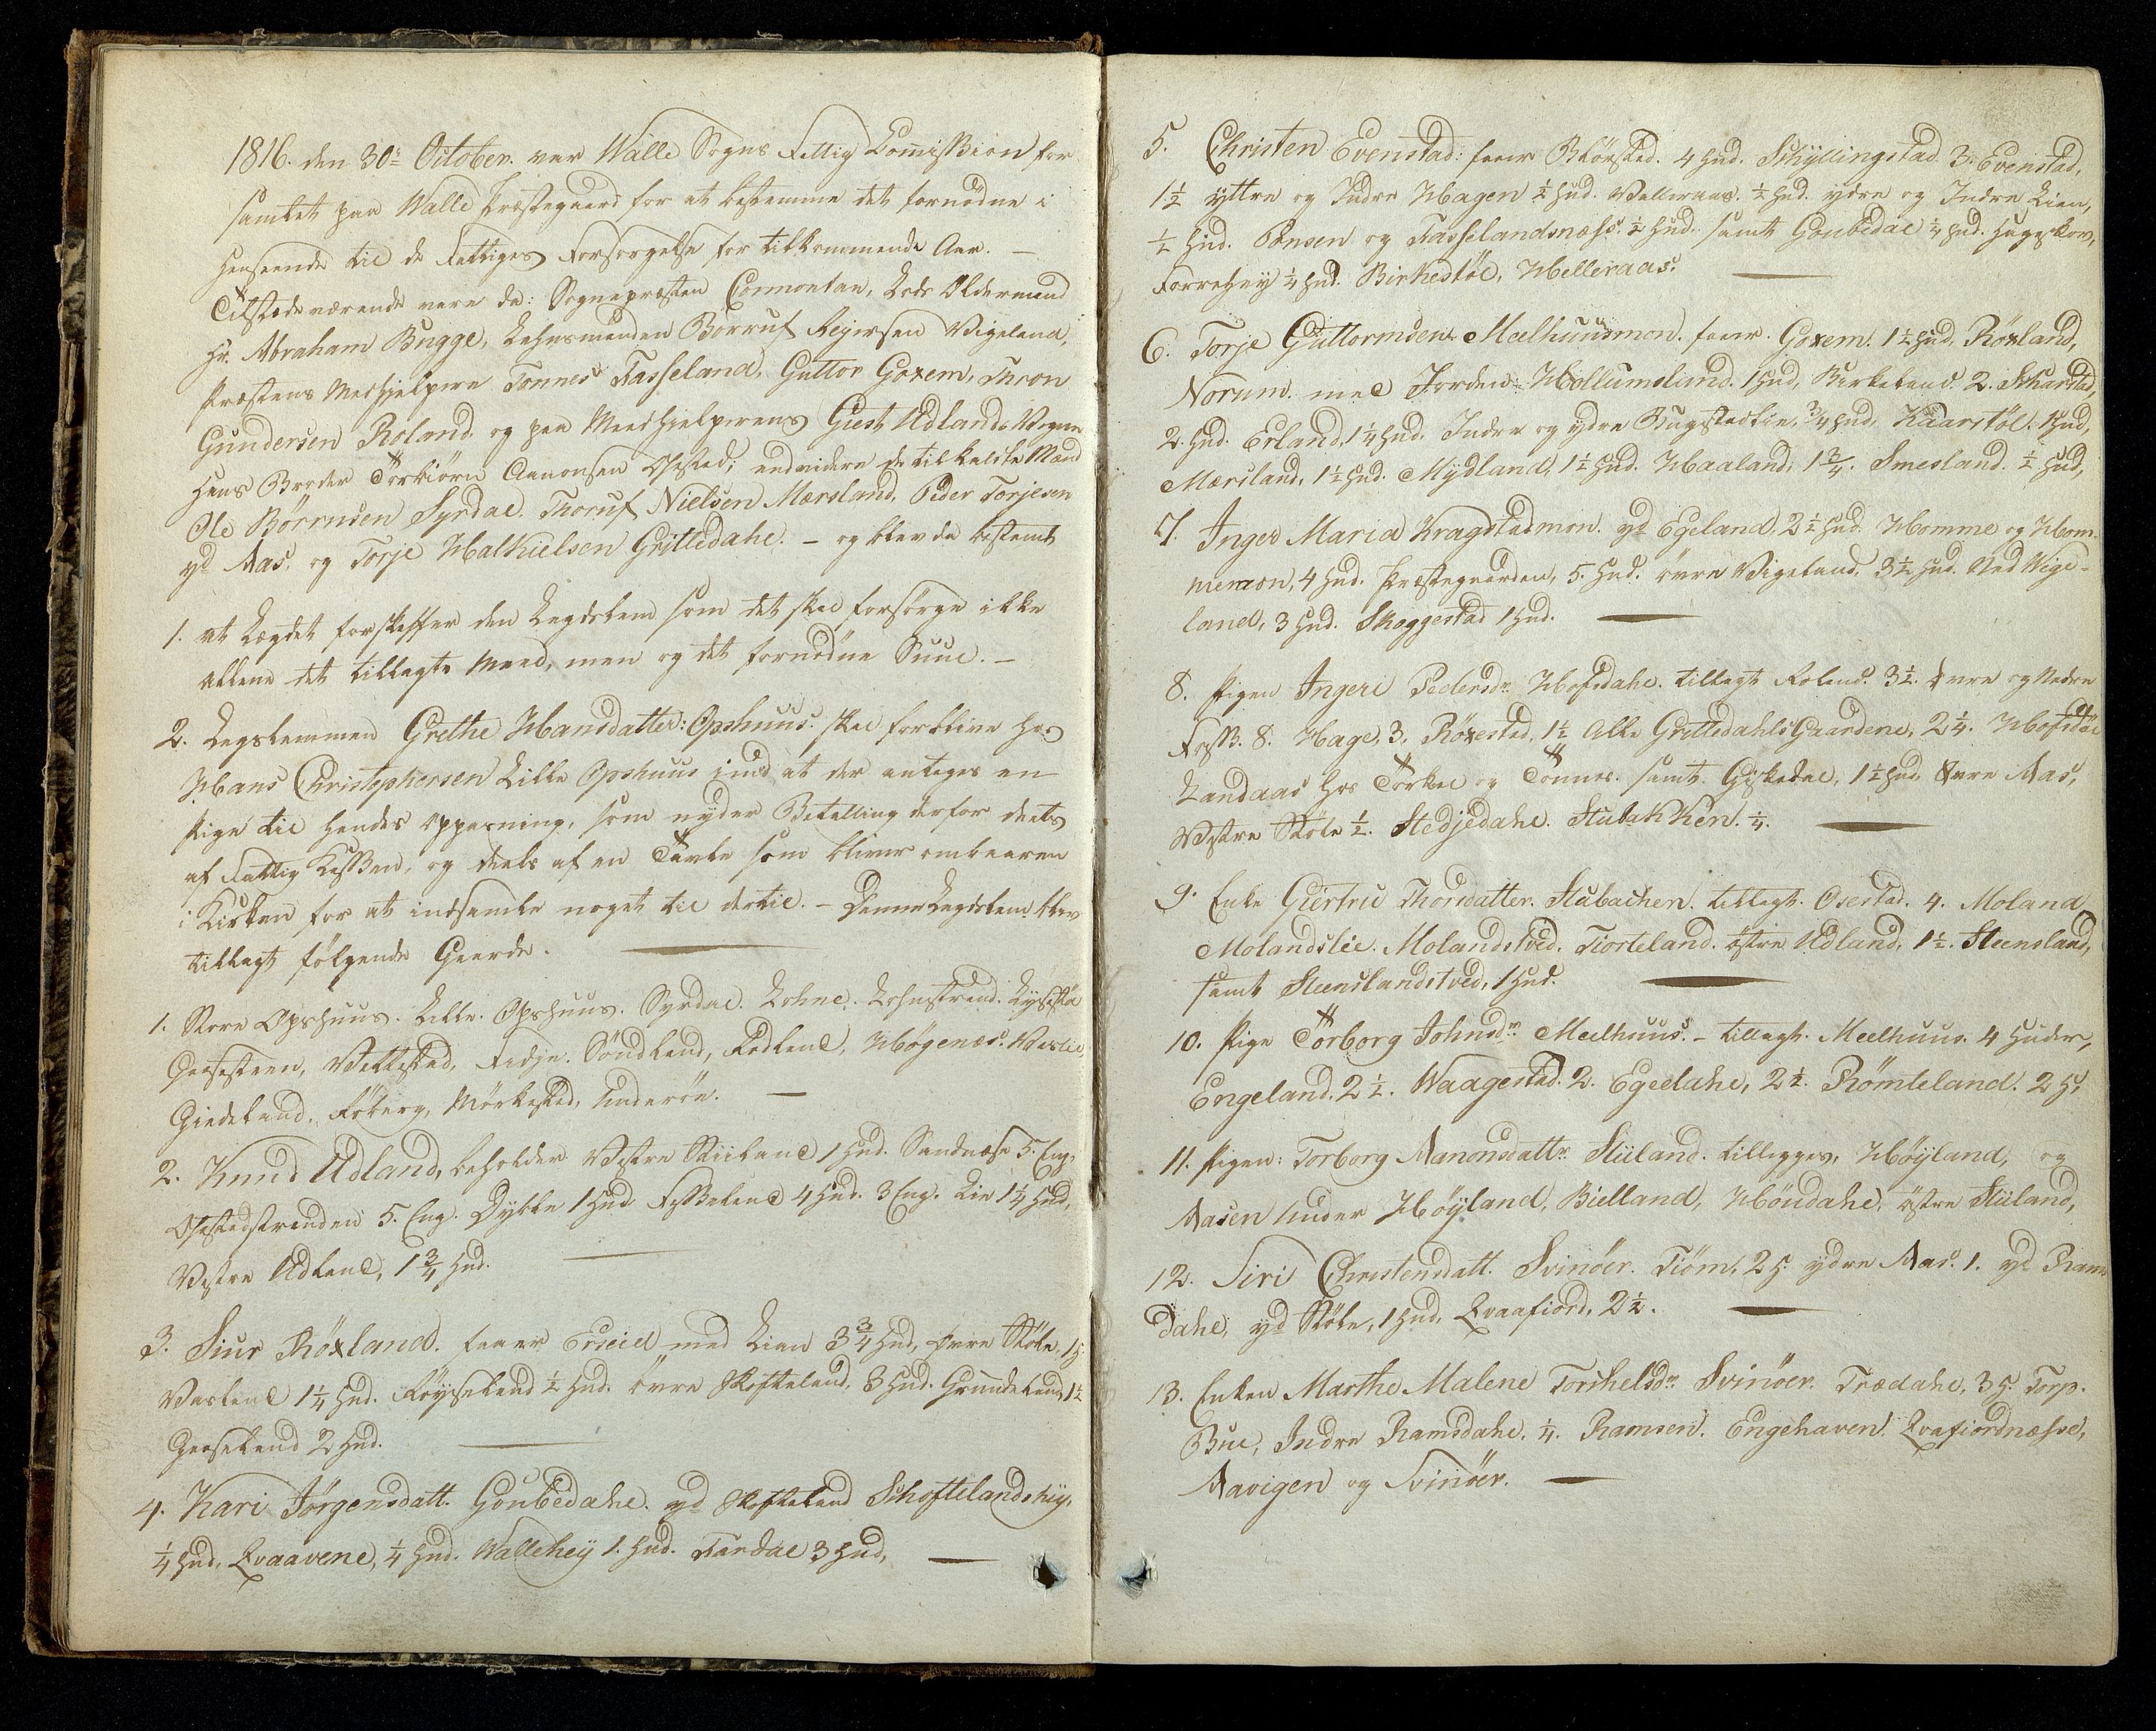 1816. den 30: October. var Walle Sogns Fattig Commission for
samlet paa Walle Præstegaard for at bestemme det fornødne i
Henseende til de Fattiges Forsorgelse for tilkommende Aar. —
Tilstædeværende vare da: Sognepræsten Conmontan, Lods Oldermand
Hr. Abraham Bugge, Lehnsmanden Börruf Reyersen Vigeland,
Præstens Medhjelpere Tonnes Tasseland, Guttor Goxem, Thron
Gundersen Roland og paa Medhjelperens Giest Udlands Vegne
hans Broder Törkiörn Aanonsen Osestad; endvidere de tilkaldte Mænd
Ole Börrusen Syrdal. Thoruf Nielsen Mærsland, Peder Torjesen
yd Aas. og Torje Halkielsen Grittedahl. — og blev da bestemt
1. at Lægdet forskaffer den Legdslem som det skal forsörge ikke
allene det tillagte Meel, men og det fornödne Suul. —
2. Legslemmen Grethe Hansdatter: Opshuus. skal forblive hos
Hans Christophersen Lille Opshuus imod at der antages en
Pige til hendes Oppasning, som nyder Betalling derfor deels
af Fattig Kassen, og deels af en Tavle som bliver ombaaren
i Kirken for at indsamle noget til dertil. — Denne Legdslem blev
tillagt fölgende Gaarde.
1. Store Opshuus. Lille. Opshuus. Syrdal. Lohne. Lohnestrand.
Gaasesteen, Vettestad, Fidje. Söndland, Rödland, Högenæs. Værlie,
Giedeland, Föberg, Mörkestad, Underöe. —
2. Knud Udland, beholder Vestre Skiiland 1 Hud. Sandnæse 5. Eng.
Osestadstranden 5. Eng. Dÿble 1 Hud 4 Hud. 3 Eng. Lie 1¼ Hud,
Vestre Udland, 1¾ Hud.
3. Siur Röxland. faaer Erseid med Lian 3¾ Hud, Övre Skibe, 1 H.
Værland 1¼ Hud. Röyseland ½ Hud. övre Skofteland, 3 Hud. Grundeland, 1½
Gaaseland 2 Hud.
4. Kari Jörgensdatt. Goubedahl. yd Skofteland Schoftelandshey.
¼ Hud, Qvaavene, ¼ Hud. Wallehey 1. Hud. Tardal 3 Hud, —
5. Christen Evenstad: faaer Blörstad. 4 Hud. Schyllingstad 3. Evenstad,
1½ yttre og Indre Hagen ½ Hud. Valleraas. ½ Hud. ydre og Indre Lian,
½ Hud. Pansen og Tasselandsnæss. ½ Hud. samt Goubedal ¼ Hud. Hageskov,
Forrehey ¼ Hud. Birkestöl, Helleraas. —
6. Torje Guttormsen Meelhuusmon. faaer. Goxem. 1½ Hud, Röxland,
Norum. med Jorden Hollumslund. 1 Hud, Birkeland. 2. Skarstad,
2. Hud. Erland, 1¼ Hud. Indre og ydre Bugstadlie, ¾ Hud, Kaarstöl. 1 Hud,
Mærsland, 1½ Hud. Mÿdland, 1½ Hud. Haaland, 1¾. Smesland. ½ Hud,
7. Inger Maria Kragstadmon. yd Egeland, 2½ Hud. Homme og Hom-
memon, 4 Hud. Præstegaarden, 5. Hud. övre Vigeland, 3½ Hud. Ned Wige-
land, 3 Hud. Skoggestad 1 Hud. —
8. Pigen Ingeri Pedersdr. Hofsdahl. tillagt Roland. 3½. Övre og Nedre
Foss. 8. Hage, 3. Röxestad, 1½ Alle Grittedahls Gaardene, 2¼. Hofsdal
Landaas hos Törkel og Tönnes. samt Giskedal, 1½ Hud, Övre Aas,
Vestre Skole ½. Stedjedahl. Stubakken. ¼. —
9. Enke Giertru Thorsdatter. Stubachen. tillagt. Osestad. 4. Moland
Molandslie. Molandstved. Tiorteland. östre Udland, 1½. Steensland,
samt Steenslandstved, 1 Hud. —
10. Pige Törborg Johnsdr. Meelhuus. — tillagt. Meelhuus. 4 Huder,
Engeland. 2½. Waagestad. 2. Egedahl, 2½. Römteland. 2 H.
11. Pigen: Torborg Aanonsdattr. Stiiland. tillegges, Höyland, og
Aasen under Höyland, Bielland, Höudahl, östre Stiiland,
12. Siri Christensdatt. Svinöer. Tiöm, 2 H. ydre Aas. 1. yd Rams
dahl, yd Skibe, 1 Hud, Qvaafiord, 2½. —
13. Enken Marthe Malene Torkelsdr. Svinöer. Trædahl, 3 H. Torp.
Bue, Indre Ramsdahl, ¼. Ramsen. Engehaven. Qvafiordnæsse,
Aavigen og Svinöer. —